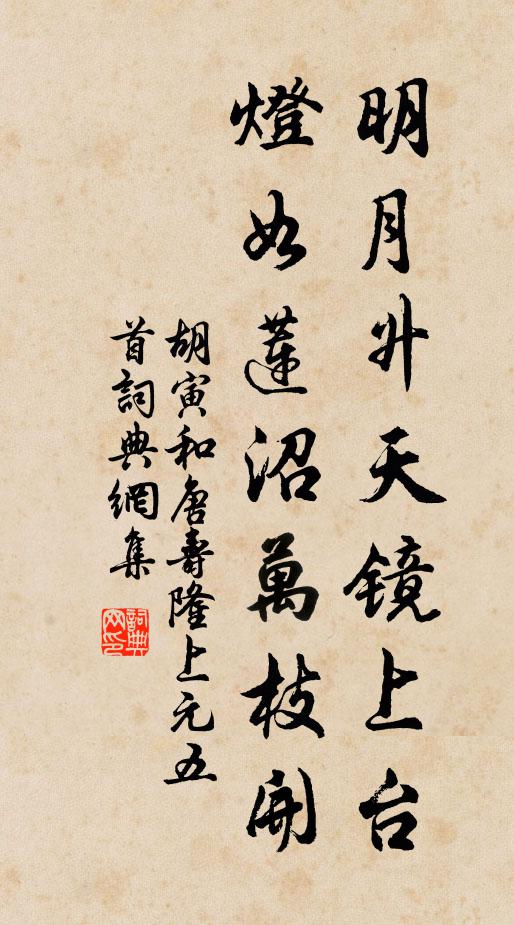 明月升天镜上台
燈如蓮沼萬枝開
胡寅和唐壽隆上元五
首詞典網集
詞典網印